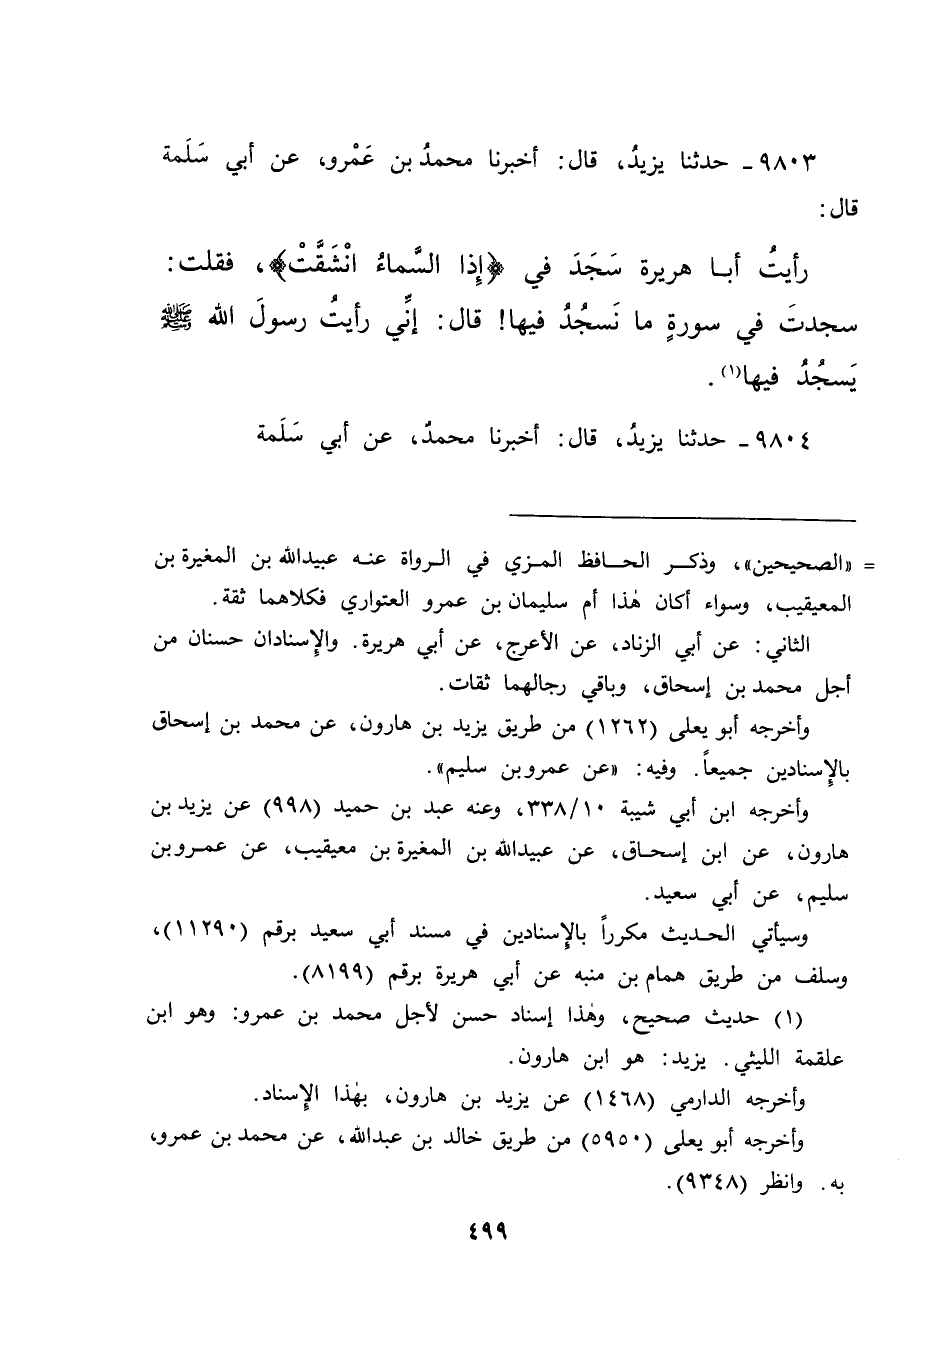 ٩٨٠٣ - حدثنا يزيدُ، قال: أخبرنا محمدُ بن عَمْرو، عن أبي سَلَمة
قال:
رأيتُ أبا هريرة سَجَدَ في ﴿إِذا السَّماءُ انْشَقَّتْ﴾، فقلت:
سجدتَ في سورةٍ ما نَسجُدُ فيها! قال: إنِّي رأيتُ رسولَ الله ﷺ
يَسجُدُ فيها(١).
٩٨٠٤ - حدثنا يزيدُ، قال: أخبرنا محمدٌ، عن أبي سَلَمة
= «الصحيحين»، وذكر الحافظ المزي في الرواة عنه عبيدالله بن المغيرة بن
المعيقيب، وسواء أكان هٰذا أم سليمان بن عمرو العتواري فكلاهما ثقة.
الثاني: عن أبي الزناد، عن الأعرج، عن أبي هريرة. والإسنادان حسنان من
أجل محمد بن إسحاق، وباقي رجالهما ثقات.
وأخرجه أبو يعلى (١٢٦٢) من طريق يزيد بن هارون، عن محمد بن إسحاق
بالإسنادين جميعاً. وفيه: «عن عمرو بن سليم».
وأخرجه ابن أبي شيبة ٣٣٨/١٠، وعنه عبد بن حميد (٩٩٨) عن يزيد بن
هارون، عن ابن إسحاق، عن عبيدالله بن المغيرة بن معيقيب، عن عمرو بن
سليم، عن أبي سعيد.
وسيأتي الحديث مكرراً بالإسنادين في مسند أبي سعيد برقم (١١٢٩٠)،
وسلف من طريق همام بن منبه عن أبي هريرة برقم (٨١٩٩).
(١) حديث صحيح، وهٰذا إسناد حسن لأجل محمد بن عمرو: وهو ابن
علقمة الليثي. يزيد: هو ابن هارون.
وأخرجه الدارمي (١٤٦٨) عن يزيد بن هارون، بهٰذا الإسناد.
وأخرجه أبو يعلى (٥٩٥٠) من طريق خالد بن عبدالله، عن محمد بن عمرو،
به. وانظر (٩٣٤٨).
٤٩٩